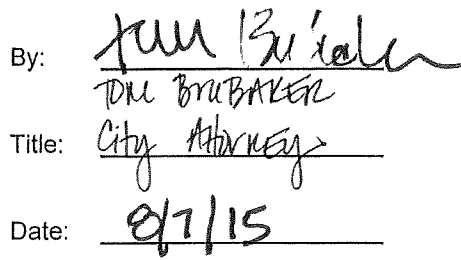 By: Tom Brubaker
TOM BRUBAKER
Title: City Attorney
Date: 8/7/15